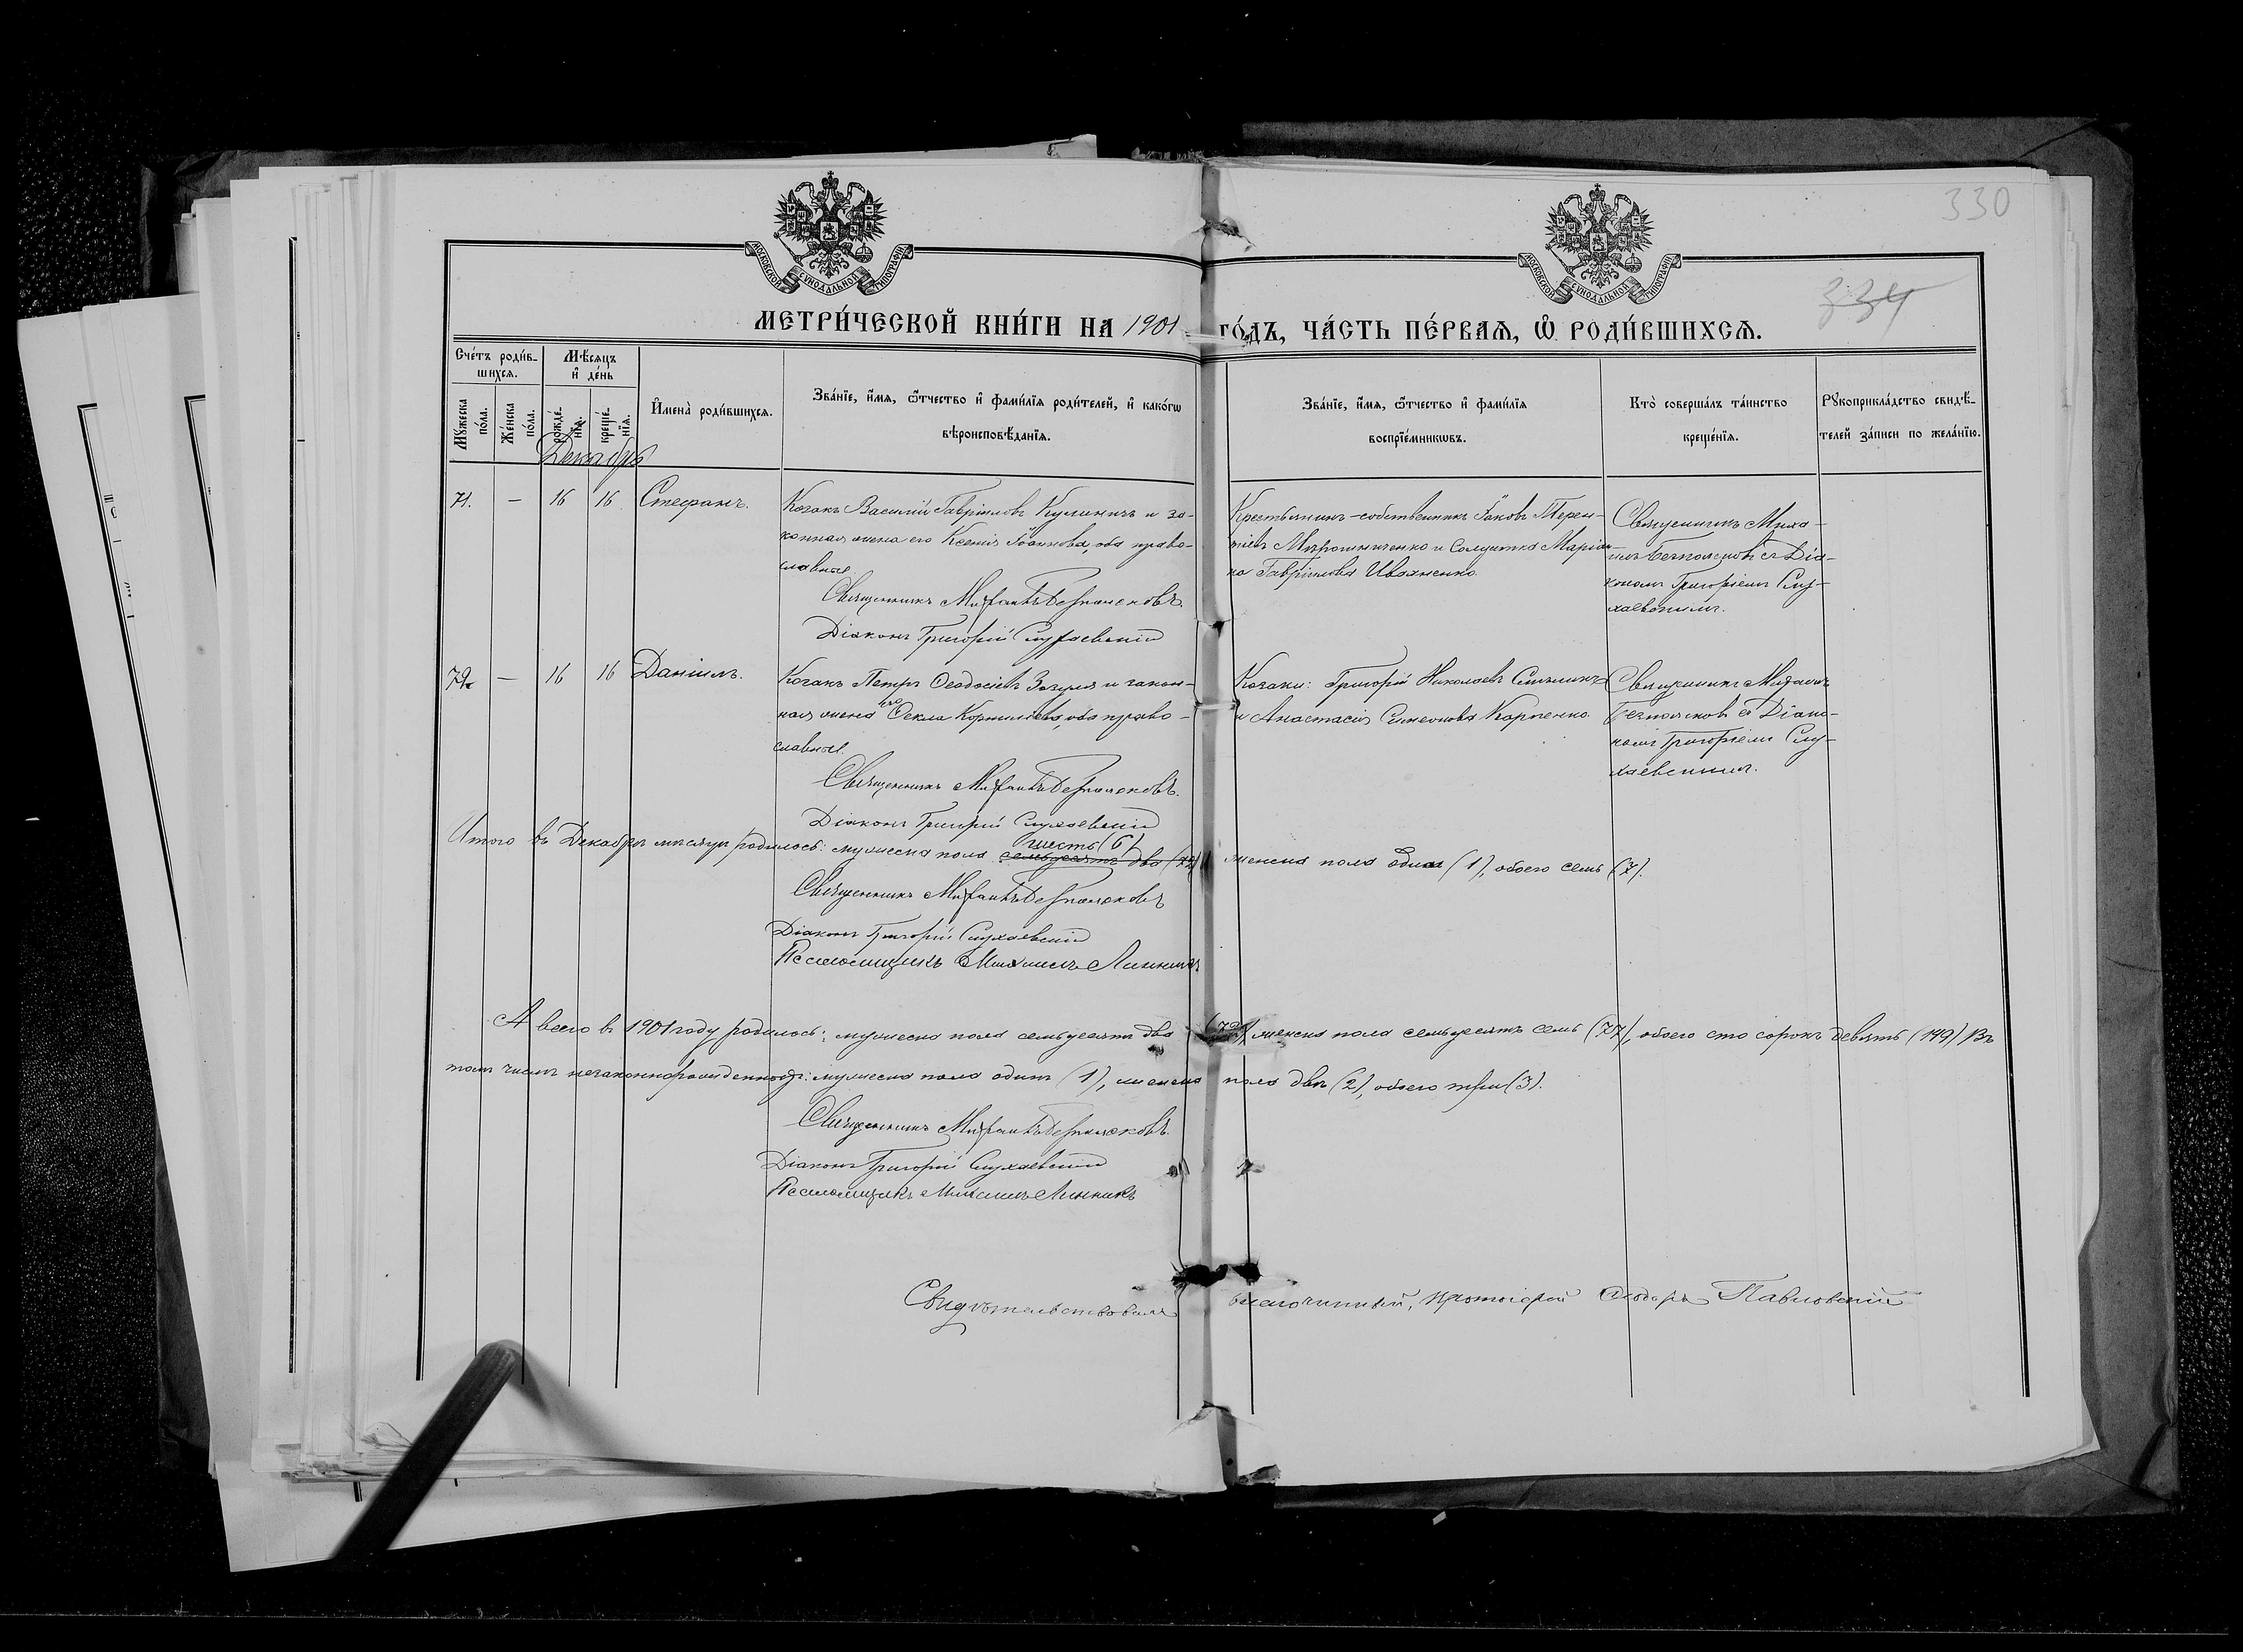 330
334
МОСКОВСКОЙ СѴНОДАЛЬНОЙ ТИПОГРАФІИ
МОСКОВСКОЙ СѴНОДАЛЬНОЙ ТИПОГРАФІИ
МЕТРИ́ЧЕСКОЙ КНИ́ГИ НА 1901 ГО́ДЪ, ЧА́СТЬ ПЕ́РВАѦ, Ѽ РОДИ́ВШИХСѦ.
Сче́тъ роди́в-
шихсѧ.
Мѣ́сѧцъ
и҆ де́нь
Мꙋ́жеска
по́ла.
Же́нска
по́ла.
рожде́-
нїѧ.
креще́-
нїѧ.
И҆мена̀ роди́вшихсѧ.
Зва́нїе, и҆́мѧ, ѻ҆́тчество и҆ фами́лїѧ роди́телей, и҆ како́гѡ
вѣроисповѣ́данїѧ.
Зва́нїе, и҆́мѧ, ѻ҆́тчество и҆ фами́лїѧ
воспрїе́мникѡвъ.
Кто̀ соверша́лъ та́инство
креще́нїѧ.
Рꙋкоприкла́дство свидѣ́-
телей за́писи по жела́нїю.
Декабрь
71. — 16 16 Стефанъ.
Козакъ Василій Гавріиловъ Кулиничъ и за-
конная жена его Ксенія Іоаннова, оба право-
славные.
Священникъ Михаилъ Безпалековъ.
Діаконъ Григорій Слухаевскій
Крестьянинъ-собственникъ Іаковъ Терен-
тіевъ Мирошниченко и Солдатка Маріан-
на Гавріилова Иваненко.
Священникъ Миха-
илъ Безпалековъ съ Діа-
кономъ Григоріемъ Слу-
хаевскимъ.
72. — 16 16 Даніилъ.
Козакъ Петръ Феодосіевъ Зозуля и закон-
ная жена его Фекла Корниліева, оба право-
славные.
Священникъ Михаилъ Безпалековъ.
Діаконъ Григорій Слухаевскій
Козаки: Григорій Николаевъ
и Анастасія Симеонова Карпенко.
Священникъ Михаилъ
Безпалековъ съ Діако-
номъ Григоріемъ Слу-
хаевскимъ.
шесть (6)
Итого въ Декабрѣ мѣсяцѣ родилось: мужеска пола семьдесятъ два (72) женска пола одна (1), обоего семь (7).
Священникъ Михаилъ Безпалековъ
Діаконъ Григорій Слухаевскій
Псаломщикъ Михаилъ Линникъ
А всего въ 1901 году родилось: мужеска пола семьдесятъ два (72), женска пола семьдесятъ семь (77), обоего сто сорокъ девять (149) Въ
томъ числѣ незаконнорожденныхъ: мужеска пола одинъ (1), женска пола двѣ (2), обоего три (3).
Священникъ Михаилъ Безпалековъ.
Діаконъ Григорій Слухаевскій
Псаломщикъ Михаилъ Линникъ
Свидѣтельствовалъ благочинный, протоіерей Ѳеодоръ Павловскій